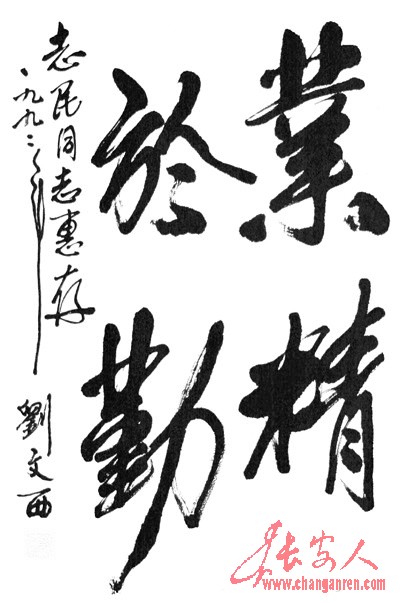 業精
於勤
志民同志惠存
一九九二年
劉文西
长安人
www.changanren.com